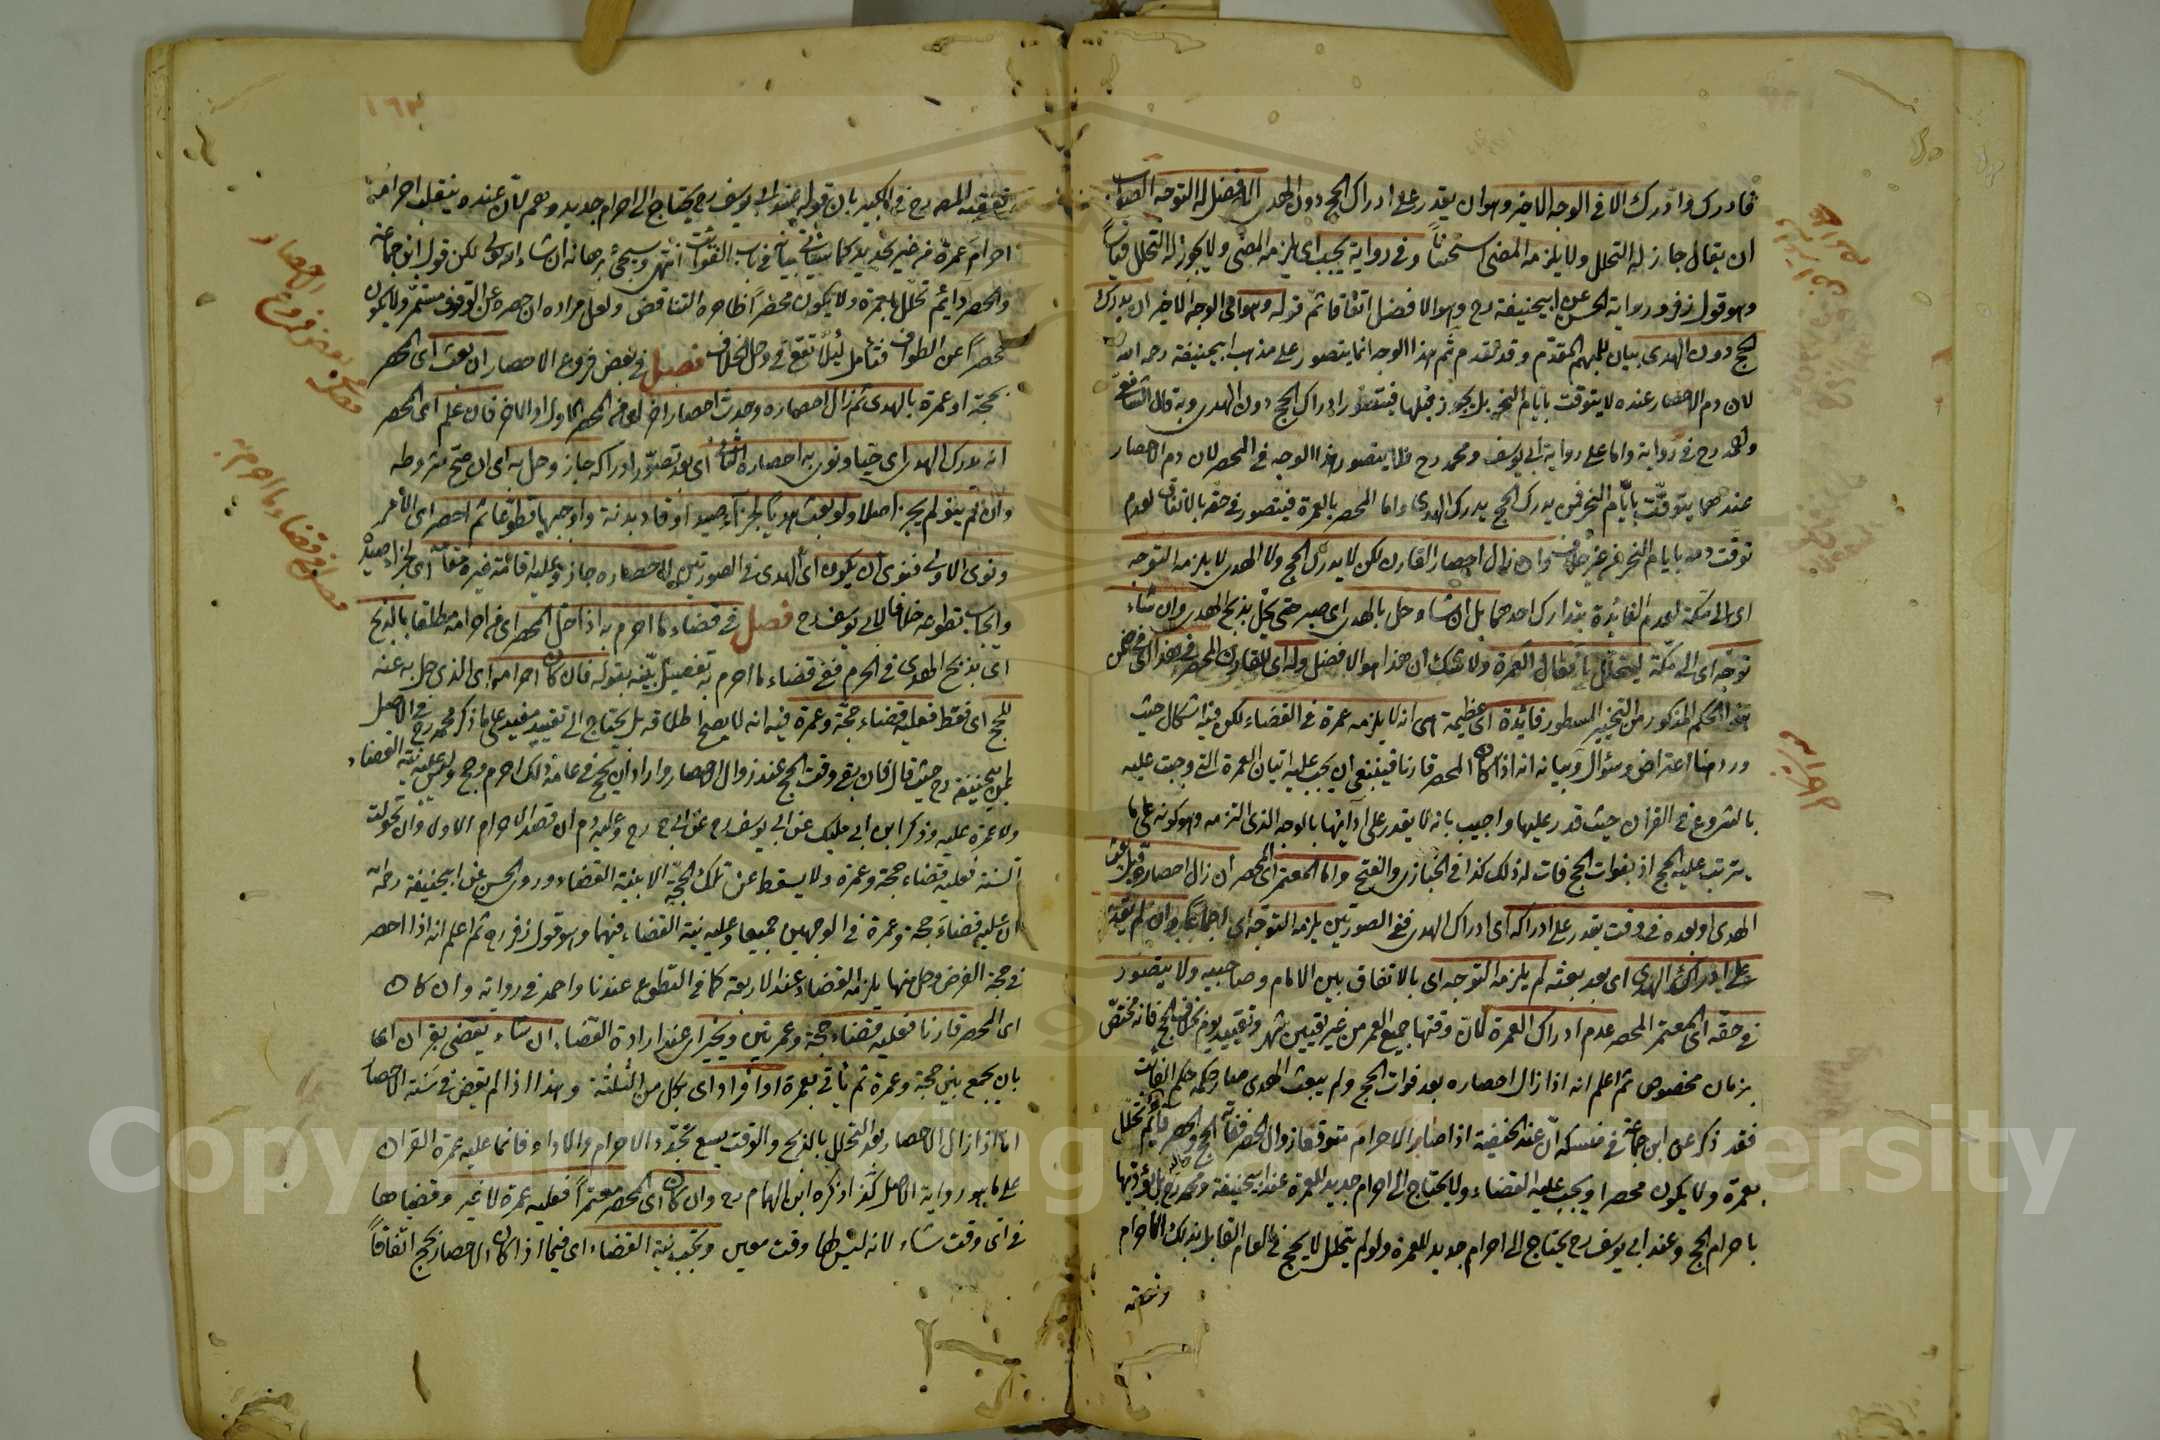 فادرك واذرك الا في الوجه الاخير وهو ان يقدر على ادراك الحج دون الهدى الافضل له التوجه الصواب
ان يقال جاز له التحلل ولا يلزمه المضى استحسانا وفي رواية يجب اى يلزمه المضى ولا يجوز له التحلل قياسا
وهو قول زفر ورواية الحسن عن ابيحنيفة رح وهو الافضل اتفاقا ثم قوله وهو اى الوجه الاخير ان يدرك
الحج دون الهدى بيان للمبهم المقدم وقد تقدم ثم هذا الوجه انما يتصور على مذهب ابيحنيفة رحمه الله
لان دم الاحصار عنده لا يتوقت بايام النحر بل يجوز قبلها فيتصور ادراك الحج دون الهدى وبه قال الشافعى
واحمد رح في رواية واما على رواية ابى يوسف ومحمد رح فلا يتصور هذا الوجه في المحصر لان دم الاحصار
عندهما يتوقت بايام النحر فمن يدرك الحج يدرك الهدى واما المحصر بالعمرة فيتصور في حقه بالاتفاق لعدم
توقت دمه بايام النحر من غير خلاف وان زال احصار القارن لكن لا يدرك الحج ولا الهدى لا يلزمه التوجه
اى الى مكة لعدم الفائدة بتدارك احدهما بل ان شاء حل بالهدى اى صبر حتى يحل بذبح الهدى وان شاء
توجه اى الى مكة ليتحلل بافعال العمرة ولا شك ان هذا هو الافضل وله اى للقارن المحصر في هذا اى في ضمن
هذا الحكم المذكور من التخيير المسطور فائدة اى عظيمة هى انه لا يلزمه عمرة في القضاء لكن فيه اشكال حيث
ورد هنا اعتراض وسؤال وبيانه انه اذا كان المحصر قارنا فينبغى ان يجب عليه اتيان العمرة التى وجبت عليه
بالشروع في القران حيث قدر عليها واجيب بانه لا يقدر على ادائها بالوجه الذى التزمه وهو كونه على ما
يترتب عليه الحج اذ بفوات الحج فات له ذلك كذا في الخبازى والفتح واما المعتمر اى المحصر ان زال احصاره قبل بعث
الهدى او بعده في وقت يقدر على ادراكه اى ادراك الهدى ففى الصورتين يلزمه التوجه اى اجماعا وان لم يقدر
على ادراك الهدى اى بعد بعثه لم يلزمه التوجه اى بالاتفاق بين الامام وصاحبيه ولا يتصور
في حقه اى المعتمر المحصر عدم ادراك العمرة لان وقتها جميع العمر من غير تعيين شهر وتقييد يوم بخلاف الحج فانه مختص
بزمان مخصوص ثم اعلم انه اذا زال احصاره بعد فوات الحج ولم يبعث الهدى صار حكمه حكم الفائت
فقد ذكر عن ابن جماعة في منسكه ان عند الحنيفية اذا صابر الاحرام متوقعا زوال الحصر ففاته الحج والحصر دائم تحلل
بعمرة ولا يكون محصرا ويجب عليه القضاء ولا يحتاج الى احرام جديد للعمرة عند ابيحنيفة ومحمد رح بل يؤديها
باحرام الحج وعند ابى يوسف رح يحتاج الى احرام جديد للعمرة ولو لم يتحلل لا يحج في العام القابل بذلك الاحرام
وتعقبه
١٦٣
وتعقبه المص رح في الكبير بان قوله عند ابى يوسف رح يحتاج الى احرام جديد وهم لان عنده ينقلب احرامه
احرام عمرة من غير تجديد كما سيأتى بيانه في باب الفوات انتهى وسيجئ برهانه ان شاء الله تعالى لكن قول ابن جماعة
والحصر دائم تحلل بعمرة ولا يكون محصرا ظاهره التناقض ولعل مراده ان حصره عن الوقوف مستمر ولا يكون
محصرا عن الطواف فتامل لئلا تقع في وحل الخلاف فصل في بعض فروع الاحصار ان بعث اى المحصر
بحجة او عمرة بالهدى ثم زال احصاره وحدث احصار اخر اى من المحصر الاول او الاخر فان علم اى المحصر
انه يدرك الهدى اى حيا ونوى به احصاره الثانى اى بعد تصور ادراكه جاز وحل به اى ان صح شروطه
وان لم ينو لم يجز اصلا ولو بعث هديا لجزاء صيد او قاد بدنة واوجبها تطوعا ثم احصر اى الآمر
ونوى الاولى فنوى ان يكون اى الهدى في الصورتين لاحصاره جاز وعليه اقامة غيره مقامه اى لجزاء صيد
وايجاب تطوعه خلافا لابى يوسف رح فصل في قضاء ما احرم به اذا حل المحصر اى من احرامه مطلقا بالذبح
اى بذبح الهدى في الحرم ففى قضاء ما احرم به تفصيل بينه بقوله فان كان احرامه اى الذى حل به عنه
للحج اى فقط فعليه قضاء حجة وعمرة فيه انه لا يصح اطلاقه بل يحتاج الى تقييد مفيد على ما ذكر محمد رح في الاصل
عن ابيحنيفة رح حيث قال فان بقى وقت الحج عند زوال الاحصار واراد ان يحج في عامه ذلك احرم وحج وليس عليه نية القضاء
ولا عمرة عليه وذكر ابن ابى مليك عن ابى يوسف رح عن ابى ح رح وعليه دم ان قصد الاحرام الاول وان تحولت
السنة فعليه قضاء حجة وعمرة ولا يسقط عنه تلك الحجة الا بنية القضاء وروى الحسن عن ابيحنيفة رحمه الله
ان عليه قضاء حجة وعمرة في الوجهين جميعا وعليه نية القضاء فيهما وهو قول زفر رح ثم اعلم انه اذا احصر
في حجة الفرض وحل منها يلزمه القضاء عند الاربعة كما في التطوع عندنا واحمد في رواية وان كان
اى المحصر قارنا فعليه قضاء حجة وعمرتين ويخير اى عند ارادة القضاء ان شاء يقضى بقران اى
بان يجمع بين حجة وعمرة ثم يأتى بعمرة او افراد اى بكل من الثلثة وهذا اذا لم يقض في سنة الاحصار
اما اذا زال الاحصار بعد التحلل بالذبح والوقت يسع تجدد الاحرام والاداء فانما عليه عمرة القران
على ما هو رواية الاصل كذا ذكره ابن الهمام رح وان كان اى المحصر معتمرا فعليه عمرة لا غير وقضاها
في اى وقت شاء لانه ليس لها وقت معين وتجب نية القضاء اى فيما اذا كان الاحصار بحج اتفاقا
فصل في بعض فروع الاحصار
فصل في قضاء ما احرم به